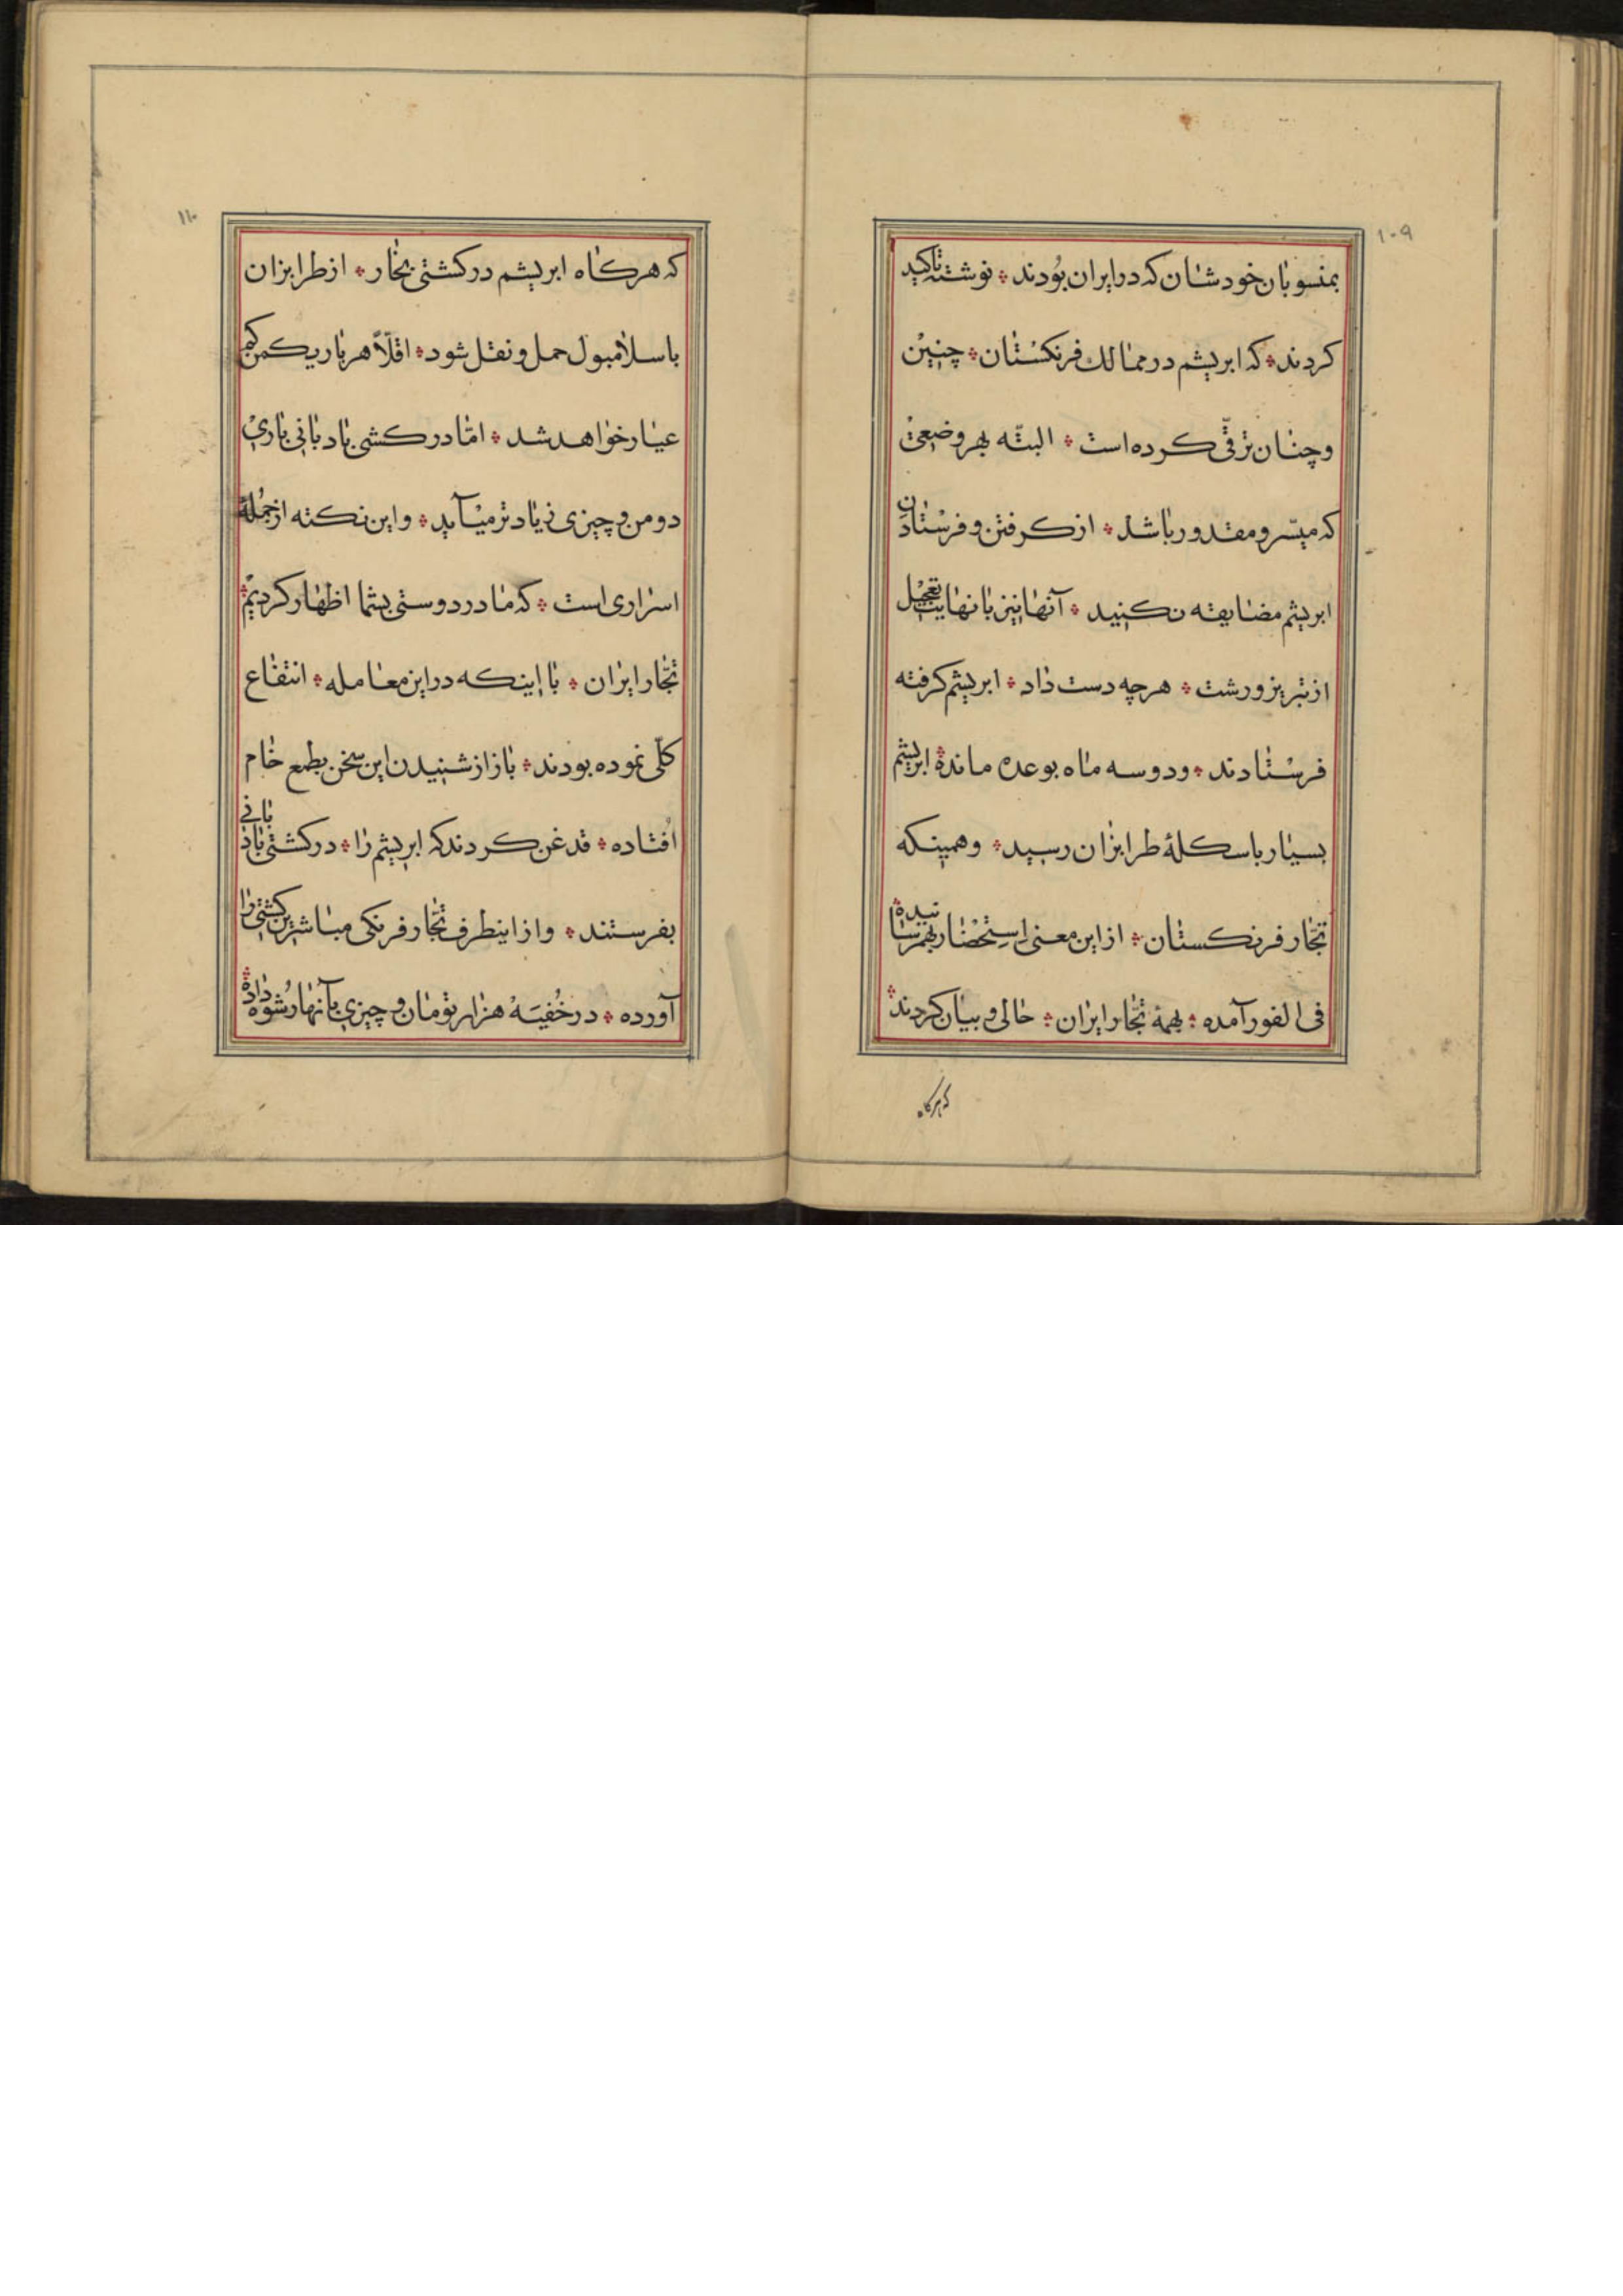 ۱۰۹
بمنسوبان خودشان که در ایران بُودند ؞ نوشته تاکید
کردند ؞ که ابریشم در ممالك فرنکسْتان ؞ چنیْن
و چنان ترقّی کرده است ؞ البتّه بهر وضعیْ
که میسّر و مقدور باشد ؞ از کرفتن و فرسْتادن
ابریشم مضایقه نکنید ؞ آنها نیز با نهایت تعجیْل
از تبریز و رشت ؞ هرچه دست داد ؞ ابریشم کرفته
فرسْتادند ؞ و دو سه ماه بوعده مانده ؞ ابریشم
بسیار باسکلهٔ طرابزان رسید ؞ و همینکه
تجّار فرنکستان ؞ از این معنی اِستِحْضار بهمرسانیده ؞
فی الفور آمده ؞ بهمهٔ تجّار ایران ؞ حالی و بیان کردند ؞
که هرکاه
۱۱۰
که هرکاه ابریشم در کشتی بخار ؞ از طرابزان
باسلامبول حمل و نقل شود ؞ اقلّاً هر بار یکمن کم
عیار خواهد شد ؞ امّا در کشتی بادبانی باریْ
دو من و چیزی زیادتر میْآید ؞ و این نکته از جُملهٔ
اسراری است ؞ که ما در دوستی بشما اظهار کردیمْ ؞
تجّار ایران ؞ با اینکه در این معامله ؞ انتفاع
کلّی نموده بودند ؞ باز از شنیدن این سخن بطمع خام
اُفتاده ؞ قدغن کردند که ابریشم را ؞ در کشتی بادبانی
بفرستند ؞ و از اینطرف تجّار فرنکی مباشرین کشتی را
آورده ؞ در خُفیَهْ هزار تومان و چیزی بآنها رُشوه داده ؞